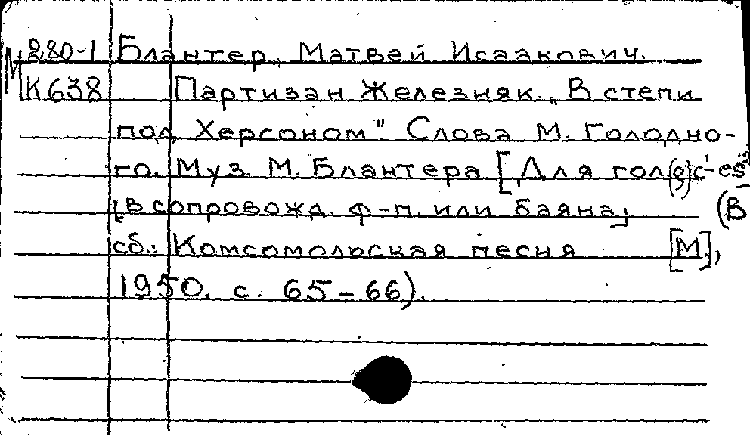 М 280-1 Блантер, Матвей Исаакович.
К638 Партизан Железняк. „В степи
под Херсоном". Слова М. Голодно-
го. Муз. М. Блантера [Для гол(о)с
[в сопровожд. ф-п. или баяна] (В
сб.: Комсомольская песня [М.],
1950. с. 65-66).